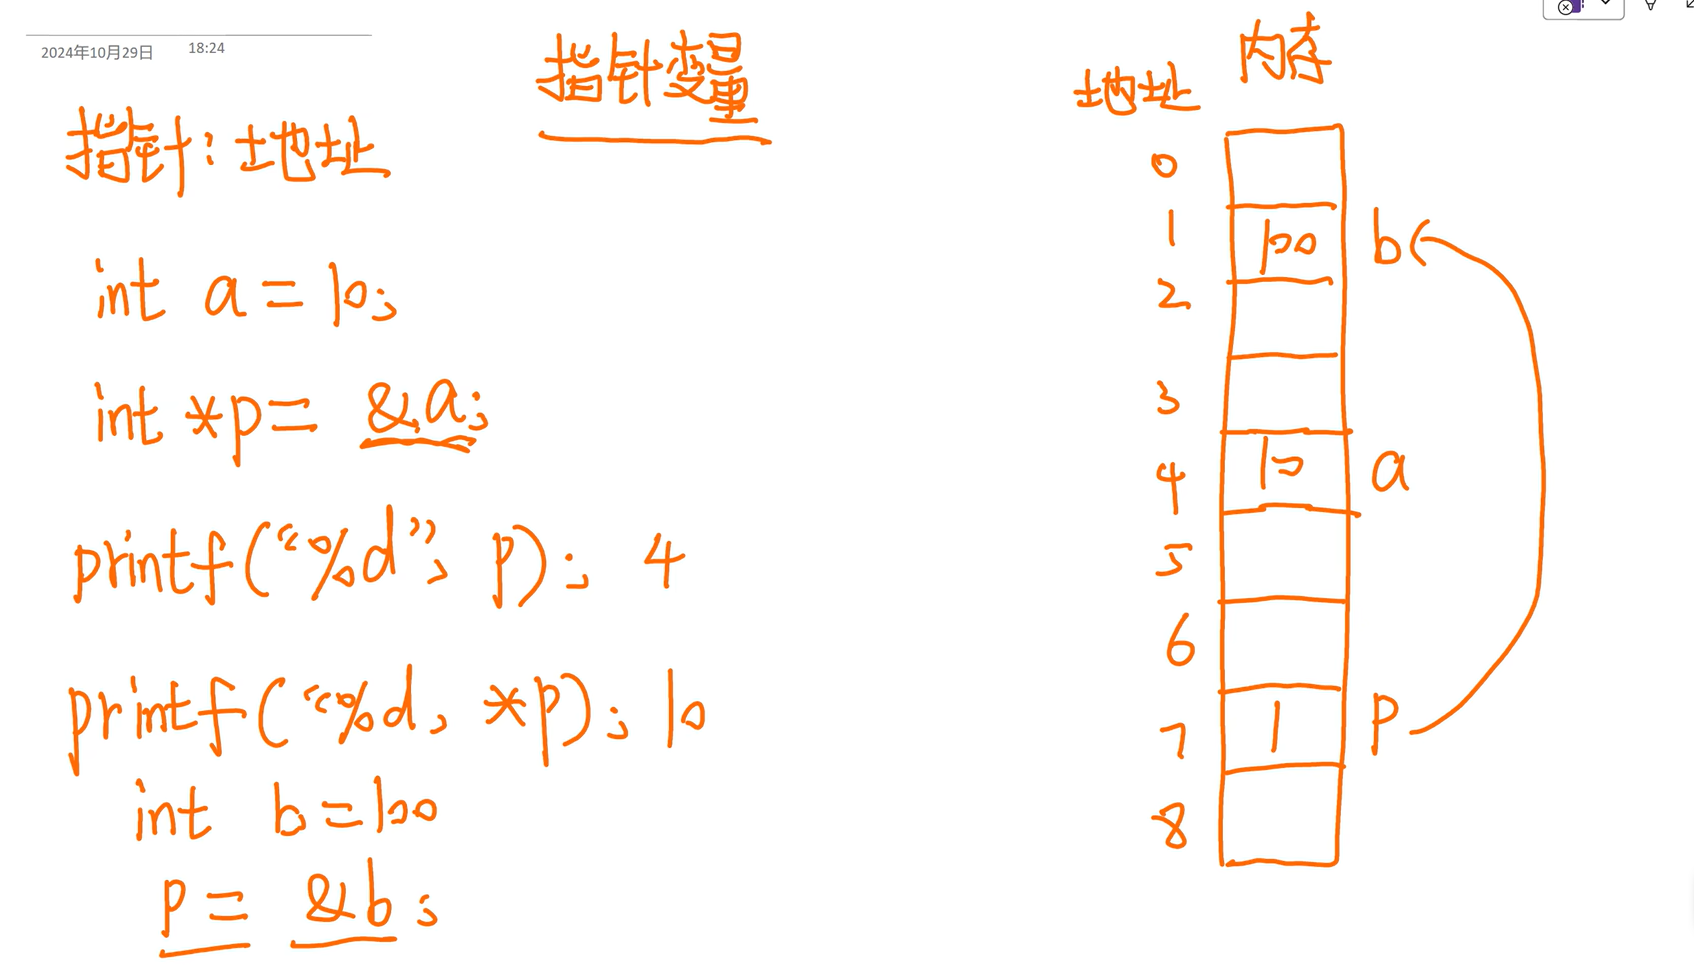 2024年10月29日 18:24
指针变量
指针：地址
int a = 10;
int *p = &a;
printf("%d", p); 4
printf("%d, *p); 10
int b = 100
p = &b;
内存
地址
0
1 100 b
2
3
4 10 a
5
6
7 1 p
8